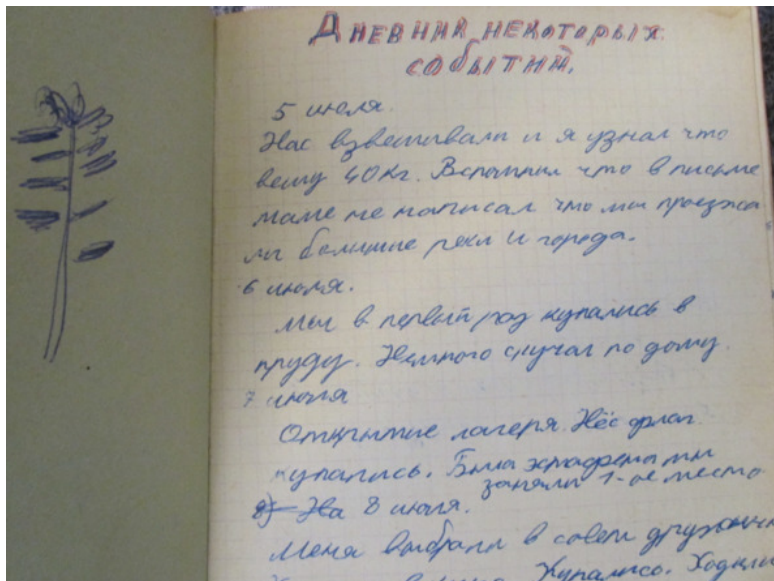 Дневник некоторых
событий.
5 июля.
Нас взвешивали и я узнал что
вешу 40 кг. Вспомнил что в письме
маме не написал что мы проезжа
ли большие реки и города.
6 июля.
Мы в первый раз купались в
пруду. Немного скучал по дому.
7 июля
Открытие лагеря. Нёс флаг.
купались. Была эстафета мы
заняли 1-ое место
8) На 8 июля.
Меня выбрали в совет дружины
Купались. Ходили